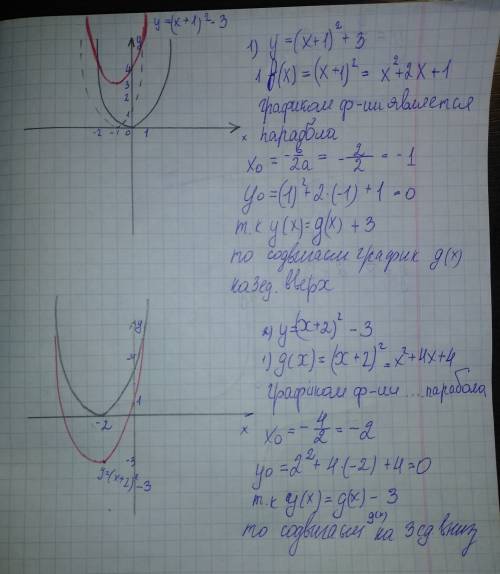 y=(x+1)²-3
y
4
3
2
1
-2 -1 0 1 x
1) y=(x+1)²+3
1. g(x)=(x+1)²= x²+2x+1
графиком ф-ии является
парабола
x₀ = -в/2a = -2/2 = -1
y₀=(1)²+2·(-1)+1=0
т.к y(x)=g(x)+3
то сдвигаем график g(x)
на 3 ед. вверх
y
1
-2 x
-3
y=(x+2)²-3
2) y=(x+2)²-3
1) g(x)=(x+2)²=x²+4x+4
графиком ф-ии ... парабола
x₀=-4/2=-2
y₀=2²+4(-2)+4=0
т.к y(x)=g(x)-3
то сдвигаем g(x) на 3 ед вниз